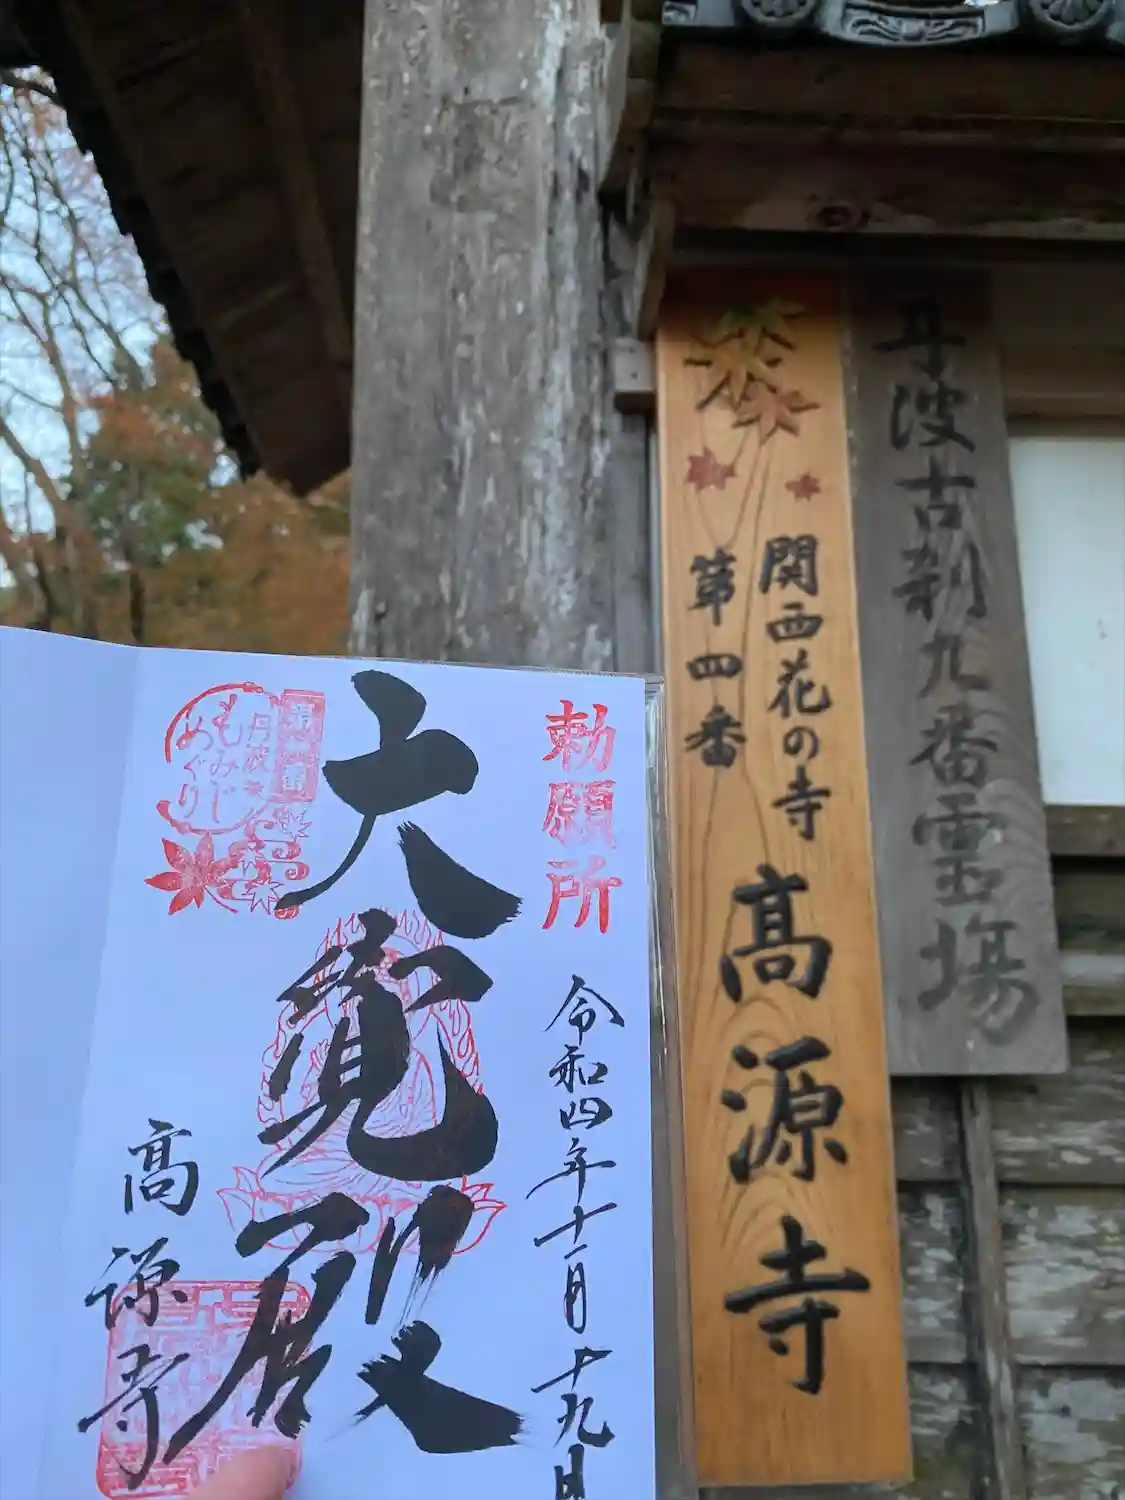 丹波古刹九番霊場
関西花の寺
第四番
高源寺
勅願所
令和四年十一月十九日
大覚殿
第一番
丹波
もみじ
めぐり
高源寺